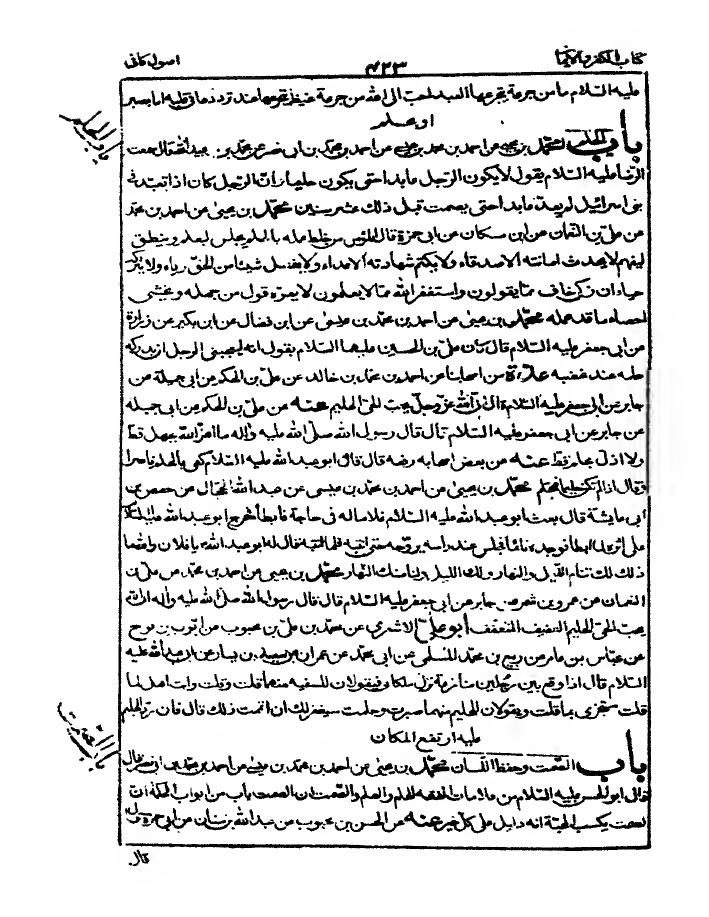 كتاب الكفر والايمان
۴۲۳
اصول كافى
عليه السّلام ما من جرعة يتجرعها العبد احبّ الى الله من جرعة غيظ يتجرعها عند ترددها فى قلبه اما بصبر
او بحلم
باب الحلم
باب الحلم محمّد بن يحيى عن احمد بن محمد بن عيسى عن احمد بن محمّد بن ابى نصر عن محمّد بن عبيد الله قال سمعت
الرّضا عليه السّلام يقول لا يكون الرّجل عابدا حتى يكون حليما و انّ الرّجل كان اذا تعبّد فى
بنى اسرائيل لم يعدّ عابدا حتى يصمت قبل ذلك عشر سنين محمّد بن يحيى عن احمد بن محمّد
عن علىّ بن النّعمان عن ابن مسكان عن ابى حمزة قال المؤمن خلط عمله بالحلم يجلس ليعلم وينطق
ليفهم لا يحدث امانته الاصدقاء ولا يكتم شهادته الاعداء ولا يفعل شيئا من الحقّ رياء ولا يتركه
حياء ان زكى خاف ممّا يقولون واستغفر الله ممّا لا يعلمون لا يغرّه قول من جهله ويخشى
احصاء ما قد عمله محمّد بن يحيى عن احمد بن محمّد بن عيسى عن ابن فضال عن ابن بكير عن زرارة
عن ابى جعفر عليه السّلام قال كان علىّ بن الحسين عليهما السّلام يقول انه ليعجبنى الرجل ان يدركه
حلمه عند غضبه عدّة من اصحابنا عن احمد بن محمّد بن خالد عن علىّ بن الحكم عن ابى جميلة عن
جابر عن ابى جعفر عليه السّلام قال انّ الله عزّ وجلّ يحبّ الحىّ الحليم عنه عن علىّ بن الحكم عن ابى جميله
عن جابر عن ابى جعفر عليه السّلام قال قال رسول الله صلّى الله عليه واله ما اعزّ الله بجهل قطّ
ولا اذلّ بحلم قط عنه عن بعض اصحابه رفعه قال قال ابو عبد الله عليه السّلام كفى بالحلم ناصرا
وقال اذا لم تكن حليما فتحلّم محمّد بن يحيى عن احمد بن محمّد بن عيسى عن عبد الله الحجّال عن حفص بن
ابى عايشة قال بعث ابو عبد الله عليه السّلام غلاما له فى حاجة فابطأ فخرج ابو عبد الله عليه السّلام
على اثره لمّا ابطأ فوجده نائما فجلس عند راسه يروّحه حتى انتبه فلمّا انتبه قال له ابو عبد الله يا فلان والله ما
ذلك لك تنام اللّيل والنّهار لك الليل ولنا منك النّهار محمّد بن يحيى عن احمد بن محمّد عن علىّ بن
النعمان عن عمرو بن شمر عن جابر عن ابى جعفر عليه السّلام قال قال رسول الله صلّى الله عليه واله انّ الله
يحبّ الحىّ الحليم العفيف المتعفّف ابو علىّ الاشعرى عن محمّد بن علىّ بن محبوب عن ايّوب بن نوح
عن عبّاس بن عامر عن ربيع بن محمّد المسلى عن ابى محمّد عن عمران عن سعيد بن يسار عن ابى عبد الله عليه
السّلام قال اذا وقع بين رجلين منازعة نزل ملكان فيقولان للسفيه منهما قلت وقلت وانت اهل لما
قلت ستجزى بما قلت ويقولان للحليم منهما صبرت وحلمت سيغفر لك ان اتممت ذلك قال فان ردّ الحليم
عليه ارتفع الملكان
باب الصّمت
باب الصّمت وحفظ اللّسان محمّد بن يحيى عن احمد بن محمّد بن عيسى عن احمد بن محمّد بن ابى نصر قال
قال ابو الحسن عليه السّلام من علامات الفقه الحلم والعلم والصّمت ان الصمت باب من ابواب الحكمة ان
الصمت يكسب المحبّة انه دليل على كلّ خير عنه عن الحسن بن محبوب عن عبد الله بن سنان عن ابى حمزة قال
قال